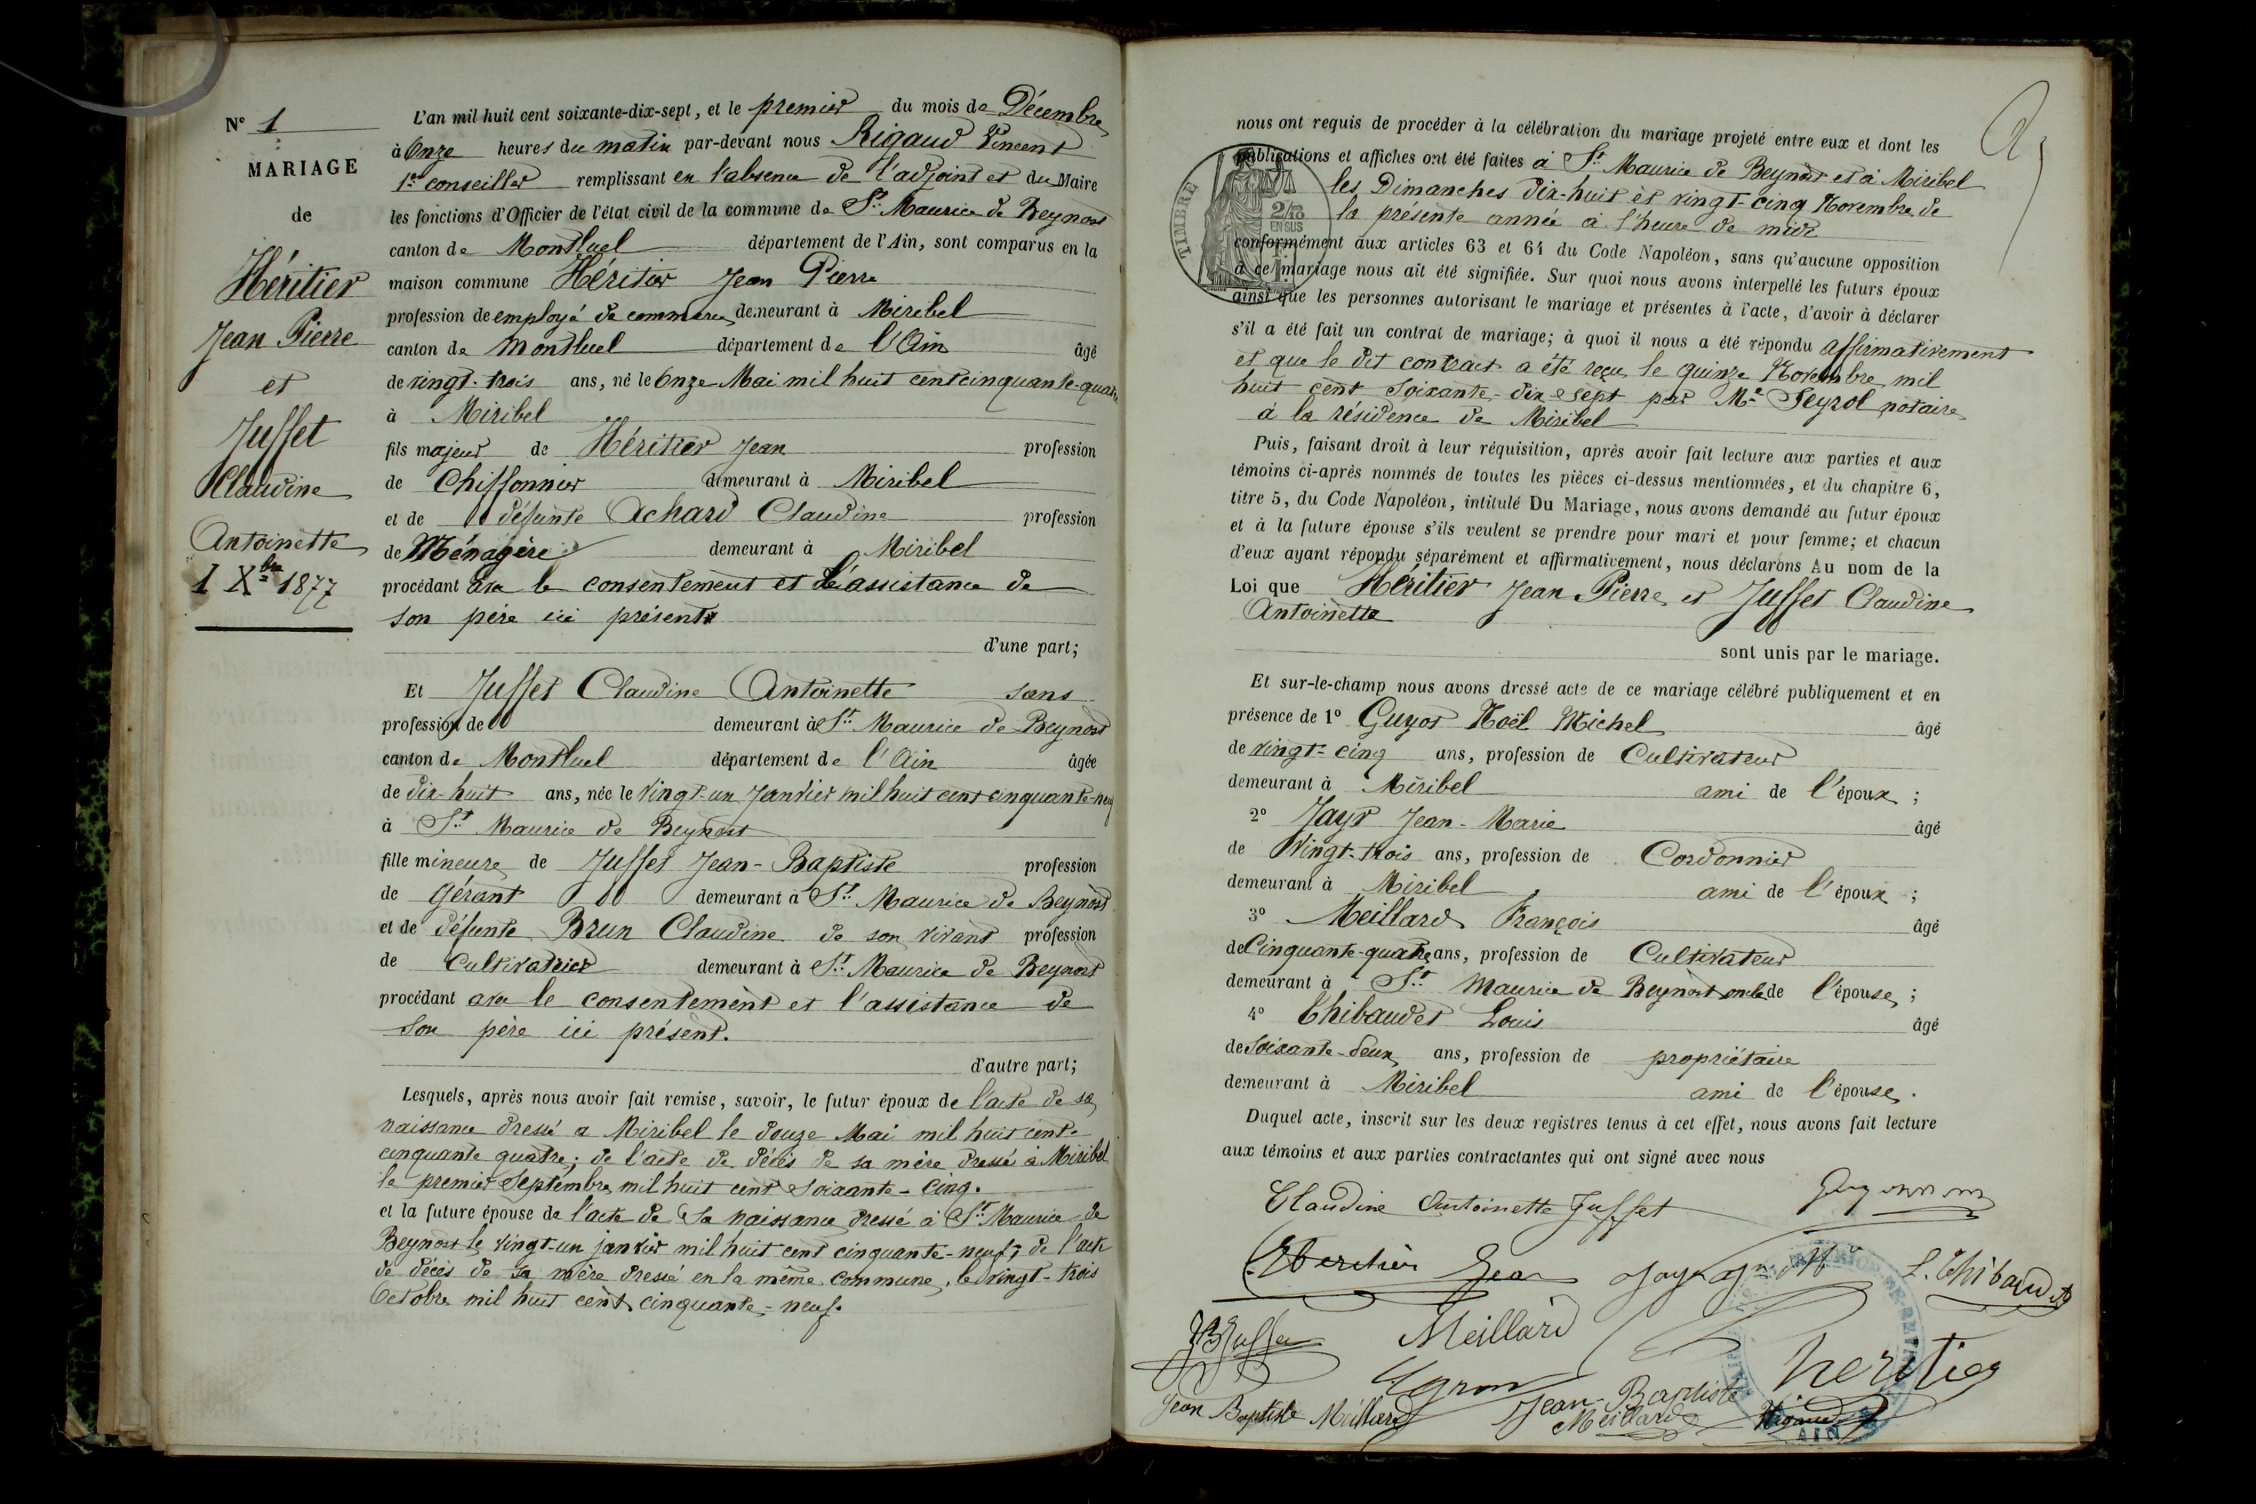 N° 1
MARIAGE
de
Héritier
Jean Pierre
et
Juffet
Claudine
Antoinette
1 Xbre 1877
L'an mil huit cent soixante-dix-sept, et le premier du mois de Décembre
à Onze heures du matin par-devant nous Rigaud Vincent
1er conseiller remplissant en l'absence de l'adjoint et du Maire
les fonctions d'Officier de l'état civil de la commune de St Maurice de Beynost
canton de Montluel département de l'Ain, sont comparus en la
maison commune Héritier Jean Pierre
profession de employé de commerce demeurant à Miribel
canton de Montluel département de l'Ain âgé
de vingt-trois ans, né le Onze Mai mil huit cent cinquante-quatre
à Miribel
fils majeur de Héritier Jean profession
de Chiffonnier demeurant à Miribel
et de défunte Achard Claudine profession
de Ménagère demeurant à Miribel
procédant avec le consentement et l'assistance de
son père ici présent
d'une part;
Et Juffet Claudine Antoinette sans
profession de demeurant à St Maurice de Beynost
canton de Montluel département de l'Ain âgée
de dix-huit ans, née le vingt-un Janvier mil huit cent cinquante-neuf
à St Maurice de Beynost
fille mineure de Juffet Jean-Baptiste profession
de Gérant demeurant à St Maurice de Beynost
et de défunte Brun Claudine de son vivant profession
de Cultivatrice demeurant à St Maurice de Beynost
procédant avec le consentement et l'assistance de
son père ici présent.
d'autre part;
Lesquels, après nous avoir fait remise, savoir, le futur époux de l'acte de sa
naissance dressé a Miribel le douze Mai mil huit cent
cinquante quatre; de l'acte de décès de sa mère dressé à Miribel
le premier Septembre mil huit cent soixante-cinq.
et la future épouse de l'acte de sa naissance dressé à St Maurice de
Beynost le vingt-un janvier mil huit cent cinquante-neuf; de l'acte
de décès de sa mère dressé en la même commune, le vingt-trois
Octobre mil huit cent cinquante-neuf.
nous ont requis de procéder à la célébration du mariage projeté entre eux et dont les
publications et affiches ont été faites à St Maurice de Beynost et à Miribel
les Dimanches dix-huit et vingt-cinq Novembre de
la présente année à l'heure de midi
TIMBRE
2/10
EN SUS
conformément aux articles 63 et 64 du Code Napoléon, sans qu'aucune opposition
à ce mariage nous ait été signifiée. Sur quoi nous avons interpellé les futurs époux
ainsi que les personnes autorisant le mariage et présentes à l'acte, d'avoir à déclarer
s'il a été fait un contrat de mariage; à quoi il nous a été répondu affirmativement
et que le dit contract a été reçu le quinze Novembre mil
huit cent soixante-dix-sept par Me Peyzol notaire
à la résidence de Miribel
Puis, faisant droit à leur réquisition, après avoir fait lecture aux parties et aux
témoins ci-après nommés de toutes les pièces ci-dessus mentionnées, et du chapitre 6,
titre 5, du Code Napoléon, intitulé Du Mariage, nous avons demandé au futur époux
et à la future épouse s'ils veulent se prendre pour mari et pour femme; et chacun
d'eux ayant répondu séparément et affirmativement, nous déclarons Au nom de la
Loi que Héritier Jean Pierre et Juffet Claudine
Antoinette
sont unis par le mariage.
Et sur-le-champ nous avons dressé acte de ce mariage célébré publiquement et en
présence de 1° Guyot Noël Michel âgé
de vingt-cinq ans, profession de Cultivateur
demeurant à Miribel ami de l'époux ;
2° Jayr Jean-Marie âgé
de Vingt-trois ans, profession de Cordonnier
demeurant à Miribel ami de l'époux ;
3° Meillard François âgé
de Cinquante-quatre ans, profession de Cultivateur
demeurant à St Maurice de Beynost oncle de l'épouse ;
4° Thibaudet Louis âgé
de Soixante-deux ans, profession de propriétaire
demeurant à Miribel ami de l'épouse.
Duquel acte, inscrit sur les deux registres tenus à cet effet, nous avons fait lecture
aux témoins et aux parties contractantes qui ont signé avec nous
Claudine Antoinette Juffet
Heretier Jean L. Thibaudet
JB Juffet Meillard
heritier
Jean Baptiste Meillard Jean-Baptiste
Meillard Rigaud
AIN